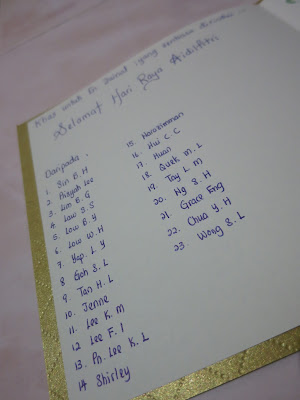 Khas untuk En Jainat yang sentiasa di
Selamat Hari Raya Aidilfitri
Daripada :
1. Sin B. H
2. Aisyah Lee
3. Lim B. G
4. Law S. S
5. Low B. Y
6. Low W. H
7. Yap. L. Y
8. Goh S. L
9. Tan H. L
10. Jenne
11. Lee K. M
12 Lee F. I
13. Pn. Lee K. L
14 Shirley
15. Harosleeman
16. Hui C. C
17. Huan
18. Quek M. L
19. Tay L M
20. Ng S. H
21. Grace Eng
22. Chua Y. H
23. Wong S. L